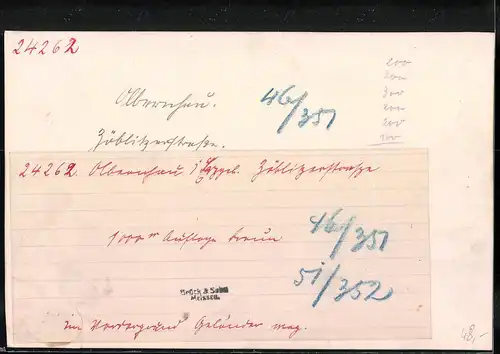 24262
Olbernhau.
46/351
Zöblitzerstraße.
200
200
300
200
200
200
24262. Olbernhau i/Erzgeb. Zöblitzerstraße
1000er Auflage braun
46/351
51/352
Brück & Sohn
Meissen.
Im Vordergrund Geländer weg.
48,-